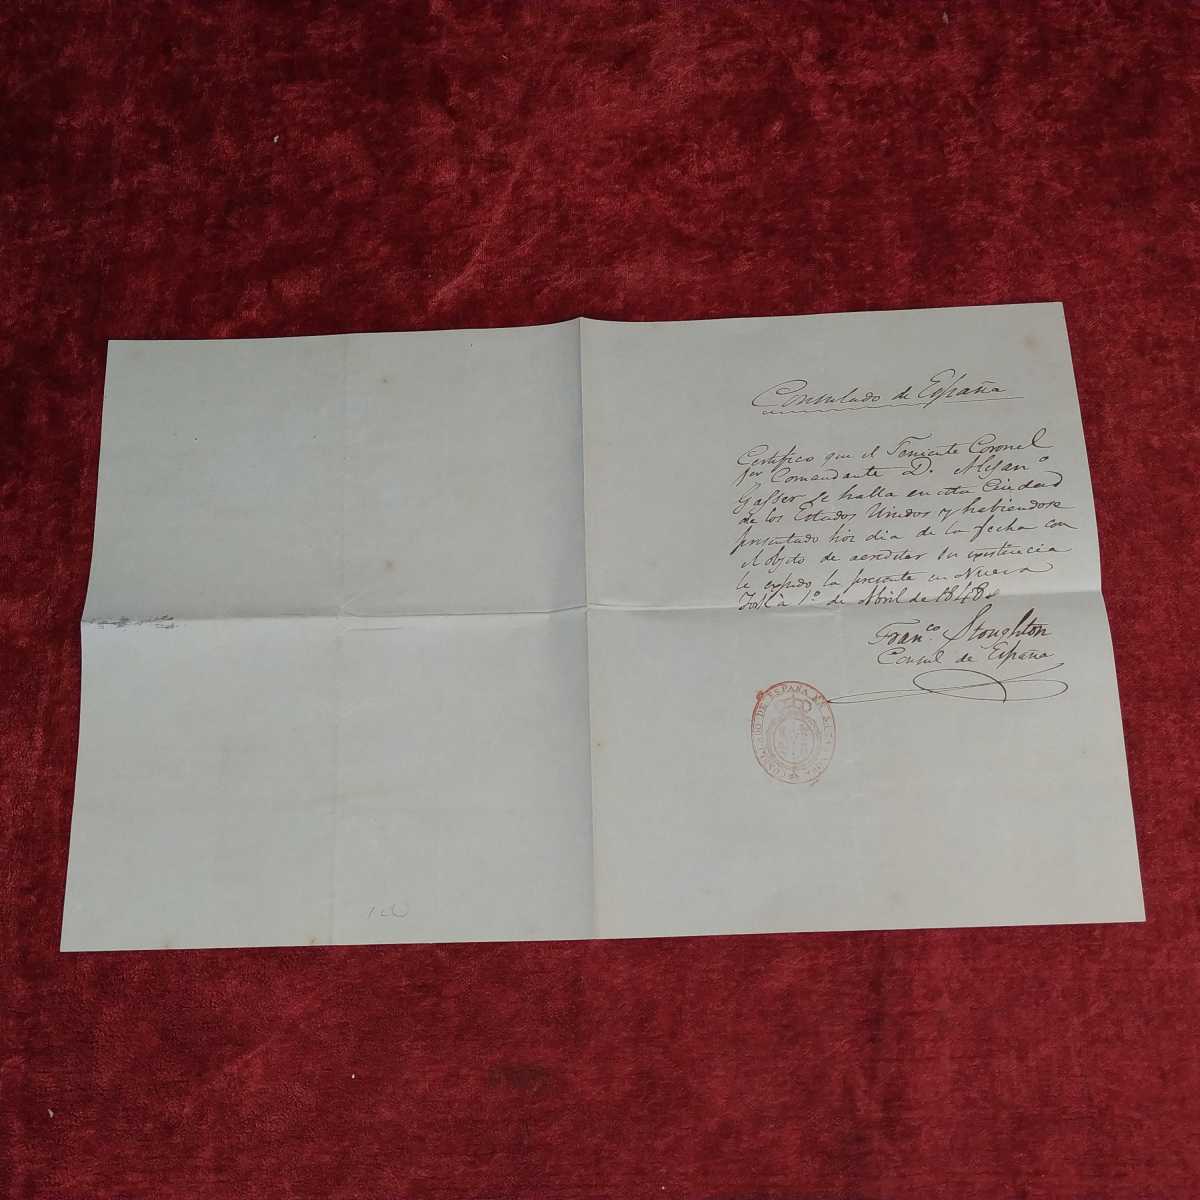 Consulado de España
Certifico que el Teniente Coronel
pr Comandante D. Alejanº
Gasser se halla en esta Ciudad
de los Estados Unidos y habiendose
presentado hoi dia de la fecha con
el objeto de acreditar su existencia
le expido la presente en Nueva
York à 1º de Abril de 1848
Francº Stoughton
Consul de España
CONSULADO DE ESPAÑA EN